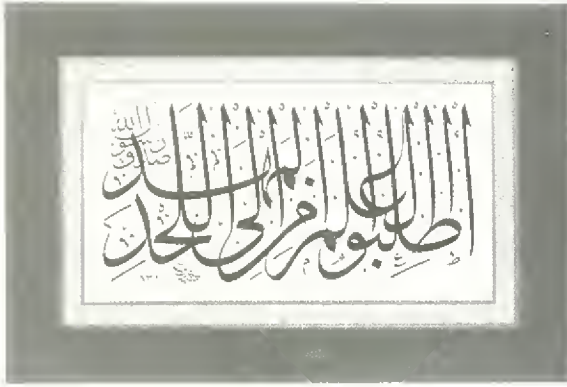 اطلبوا العلم من المهد إلى اللحد
صدق رسول الله